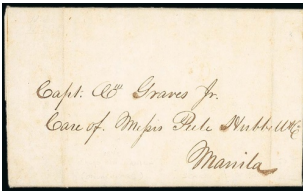 Capt. Wm Graves Jr.
Care of. Messrs Peele Hubbell & Co
Manila